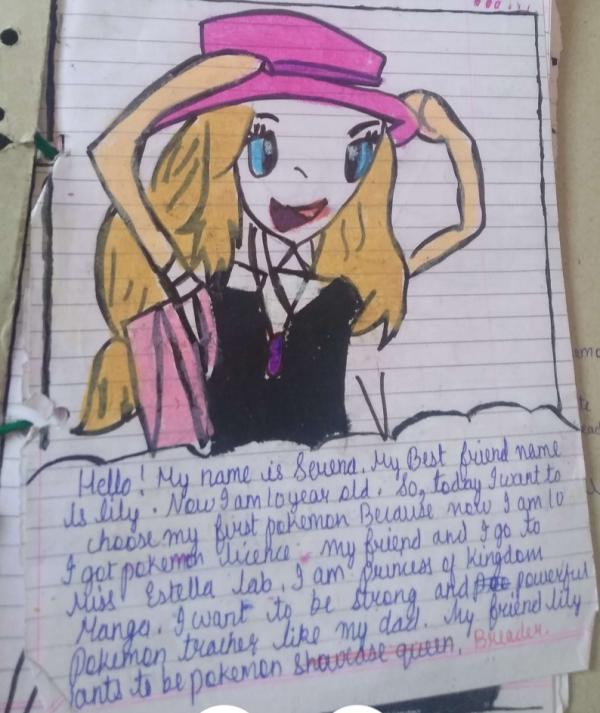 Hello! My name is Serena. My Best friend name
Is lily. Now I am 10 year old. So, today I want to
choose my first pokemon Because now I am 10
I got pokemon licence. My friend and I go to
Miss Estella lab. I am princess of kingdom
Manga. I want to be strong and powerful
Pokemon tracher like my dad. My friend lily
ants to be pokemon showcase queen. Breader.